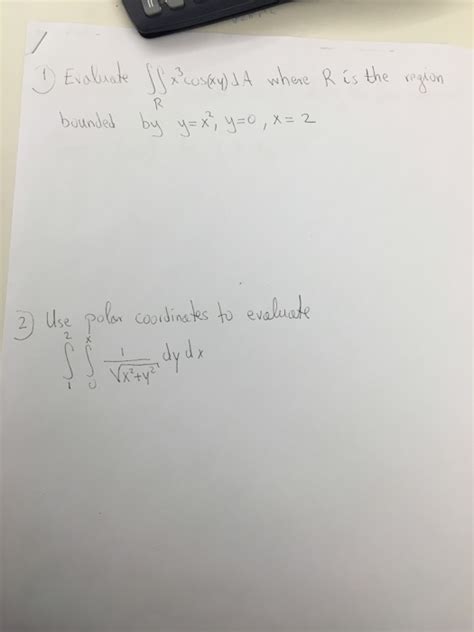 1) Evaluate ∬_R x³cos(xy)dA where R is the region
bounded by y=x², y=0, x=2
2) Use polar coordinates to evaluate
∫₁² ∫₀ˣ 1/√(x²+y²) dy dx